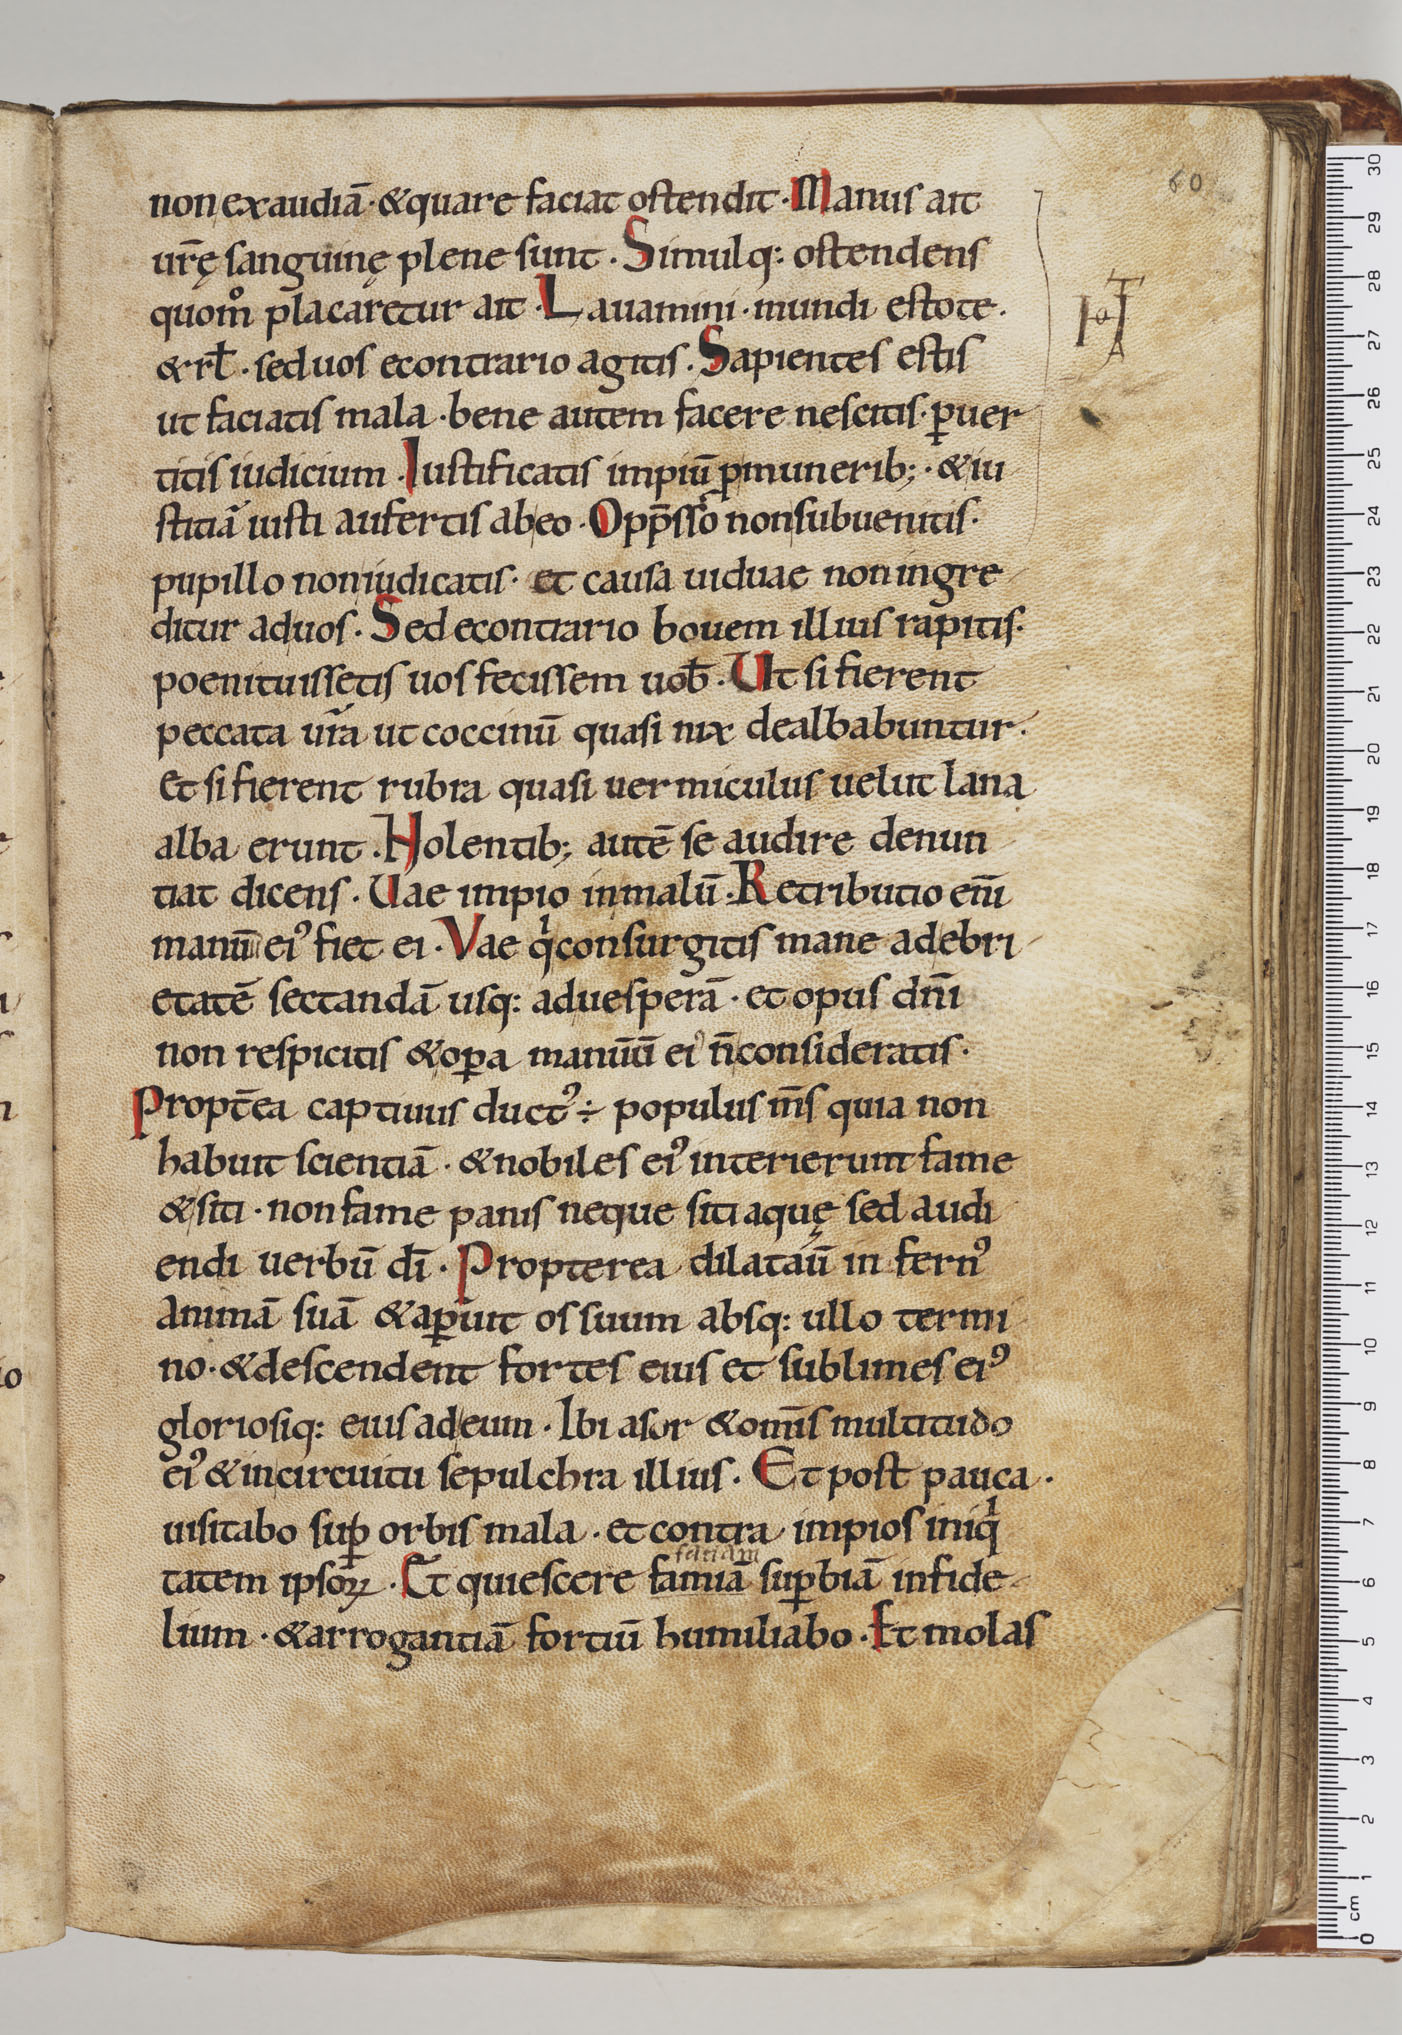 60
non exaudiā· &quare faciat ostendit· Manus ait
ur̄ę sanguinę plene sunt· Simulq: ostendens
quom̊ placaretur ait· Lauamini· mundi estote·
&rł· seduos econtrario agitis· Sapientes estis
ut faciatis mala· bene autem facere nescitis· ꝑuer
titis iudicium· Iustificatis impiū ꝓmunerib;· &iu
stitiā iusti aufertis abeo· Opp̄sso nonsubuenitis·
pupillo noniudicatis· et causa uiduae noningre
ditur aduos· Sed econtrario bouem illius rapitis·
poenituissetis uos fecissem uob̄· Ut si fierent
peccata ur̄a ut coccinū quasi nix dealbabuntur·
et si fierent rubra quasi uermiculus uelut lana
alba erunt· Nolentib; autē se audire denun
tiat dicens· Uae impio inmalū· Retributio eni̅
manuū eiꝰ fiet ei· Vae qͥconsurgitis mane adebri
etatē sectandā usq: aduesperā· et opus dn̄i
non respicitis &oꝑa manuū eiꝰ n̄consideratis·
Propt̄ea captiuus ductꝰ ÷ populus m̄s quia non
habuit scientiā· &nobiles eiꝰ interierunt fame
&siti· nonfame panis neque siti aquę sed audi
endi uerbū dī· Propterea dilatauī infernꝰ
animā suā &aꝑuit os suum absq: ullo termi
no· &descendent fortes eius et sublimes eiꝰ
gloriosiq: eius adeum· Ibi asor &om̄s multitudo
eiꝰ &incircuitu sepulchra illius· Et post pauca·
uisitabo suꝑ orbis mala· et contra impios iniqͥ
tatem ipsoꝝ· Et quiescere famiā suꝑbiā infide
faciam
lium· &arrogantiā fortiū humiliabo· Et molas